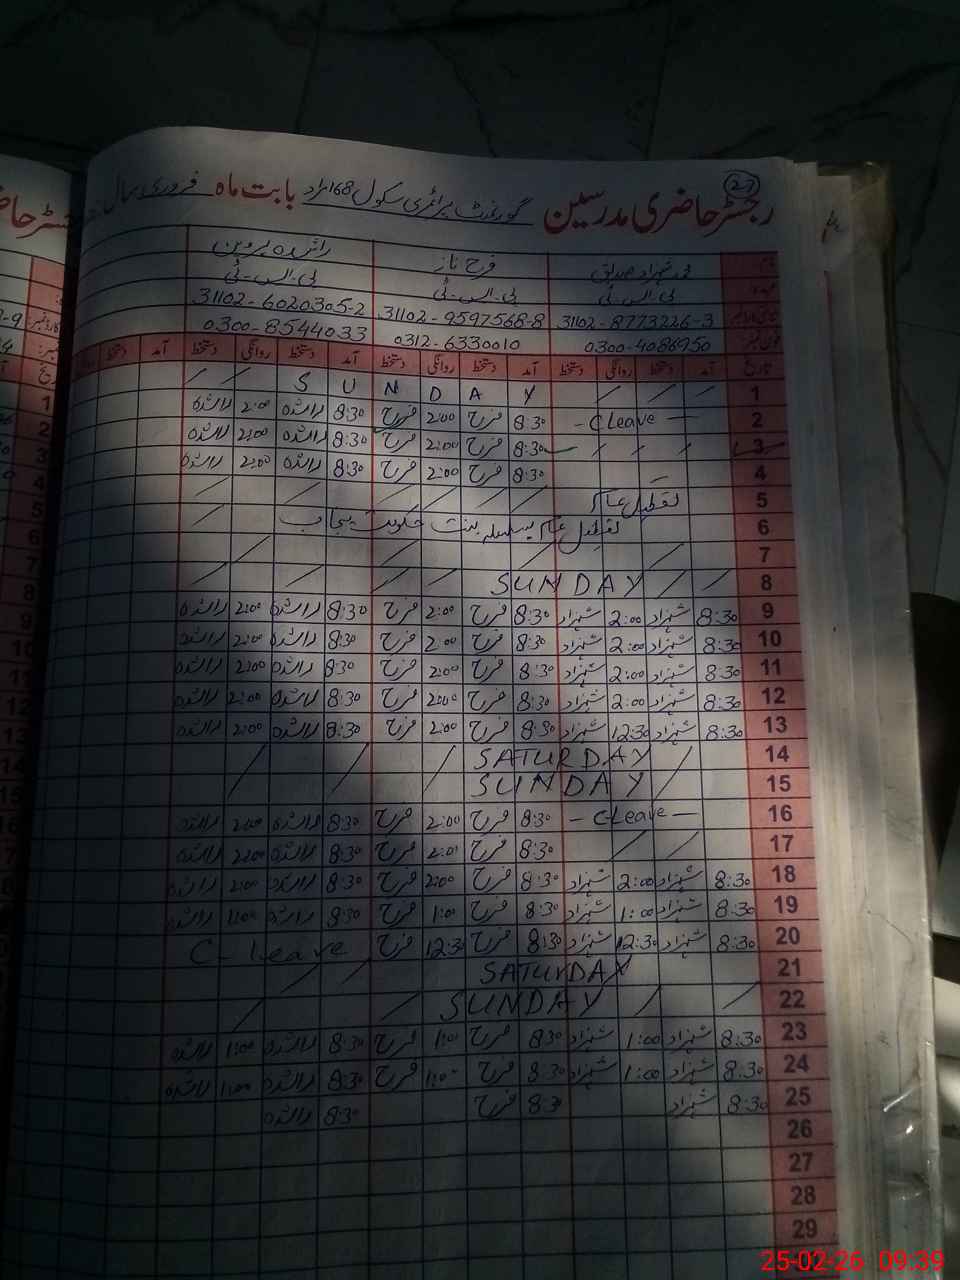 27
رجسٹر حاضری مدرسین گورنمنٹ پرائمری سکول 168 مراد بابت ماہ فروری سال
محمد شہزاد صدیق فرح ناز راشدہ پروین
پی۔ایس۔ٹی پی۔ایس۔ٹی پی۔ایس۔ٹی
31102-8773226-3 31102-9597568-8 31102-6020305-2
0300-4086950 0312-6330010 0300-8544033
تاریخ آمد دستخط روانگی دستخط آمد دستخط روانگی دستخط آمد دستخط روانگی دستخط آمد دستخط
1 S U N D A Y
2 - C Leave - 8:30 فرح 2:00 فرح 8:30 راشدہ 2:00 راشدہ
3 8:30 فرح 2:00 فرح 8:30 راشدہ 2:00 راشدہ
4 8:30 فرح 2:00 فرح 8:30 راشدہ 2:00 راشدہ
5 تعطیل عام
6 تعطیل عام بسلسلہ بسنت حکومت پنجاب
7
8 SUNDAY
9 8:30 شہزاد 2:00 شہزاد 8:30 فرح 2:00 فرح 8:30 راشدہ 2:00 راشدہ
10 8:30 شہزاد 2:00 شہزاد 8:30 فرح 2:00 فرح 8:30 راشدہ 2:00 راشدہ
11 8:30 شہزاد 2:00 شہزاد 8:30 فرح 2:00 فرح 8:30 راشدہ 2:00 راشدہ
12 8:30 شہزاد 2:00 شہزاد 8:30 فرح 2:00 فرح 8:30 راشدہ 2:00 راشدہ
13 8:30 شہزاد 12:30 شہزاد 8:30 فرح 2:00 فرح 8:30 راشدہ 2:00 راشدہ
14 SATURDAY
15 SUNDAY
16 - C-Leave - 8:30 فرح 2:00 فرح 8:30 راشدہ 2:00 راشدہ
17 8:30 فرح 2:01 فرح 8:30 راشدہ 2:00 راشدہ
18 8:30 شہزاد 2:00 شہزاد 8:30 فرح 2:00 فرح 8:30 راشدہ 2:00 راشدہ
19 8:30 شہزاد 1:00 شہزاد 8:30 فرح 1:00 فرح 8:30 راشدہ 1:00 راشدہ
20 8:30 شہزاد 12:30 شہزاد 8:30 فرح 12:30 فرح C- Leave
21 SATURDAY
22 SUNDAY
23 8:30 شہزاد 1:00 شہزاد 8:30 فرح 1:00 فرح 8:30 راشدہ 1:00 راشدہ
24 8:30 شہزاد 1:00 شہزاد 8:30 فرح 1:00 فرح 8:30 راشدہ 1:00 راشدہ
25 8:30 شہزاد 8:30 فرح 8:30 راشدہ
26
27
28
29
25-02-26 09:39